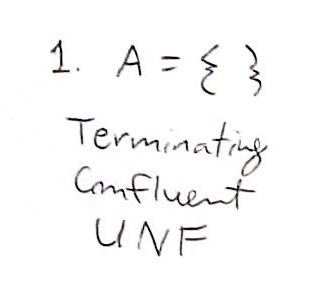 1. A = { }
Terminating
Confluent
UNF